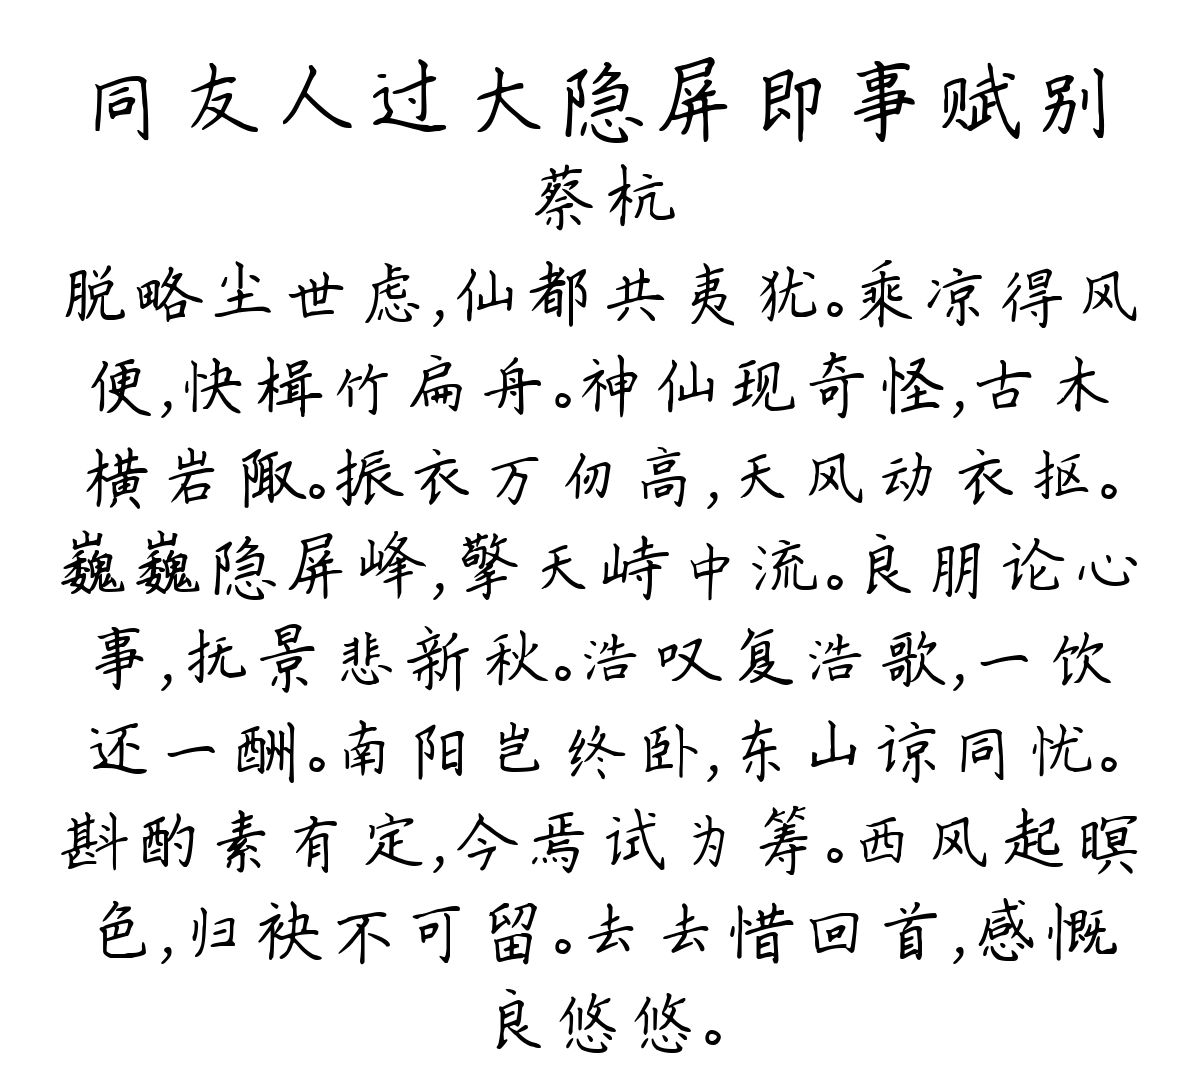 同友人过大隐屏即事赋别
蔡杭
脱略尘世虑,仙都共夷犹。乘凉得风
便,快楫竹扁舟。神仙现奇怪,古木
横岩陬。振衣万仞高,天风动衣抠。
巍巍隐屏峰,擎天峙中流。良朋论心
事,抚景悲新秋。浩叹复浩歌,一饮
还一酬。南阳岂终卧,东山谅同忧。
斟酌素有定,今焉试为筹。西风起暝
色,归袂不可留。去去惜回首,感慨
良悠悠。